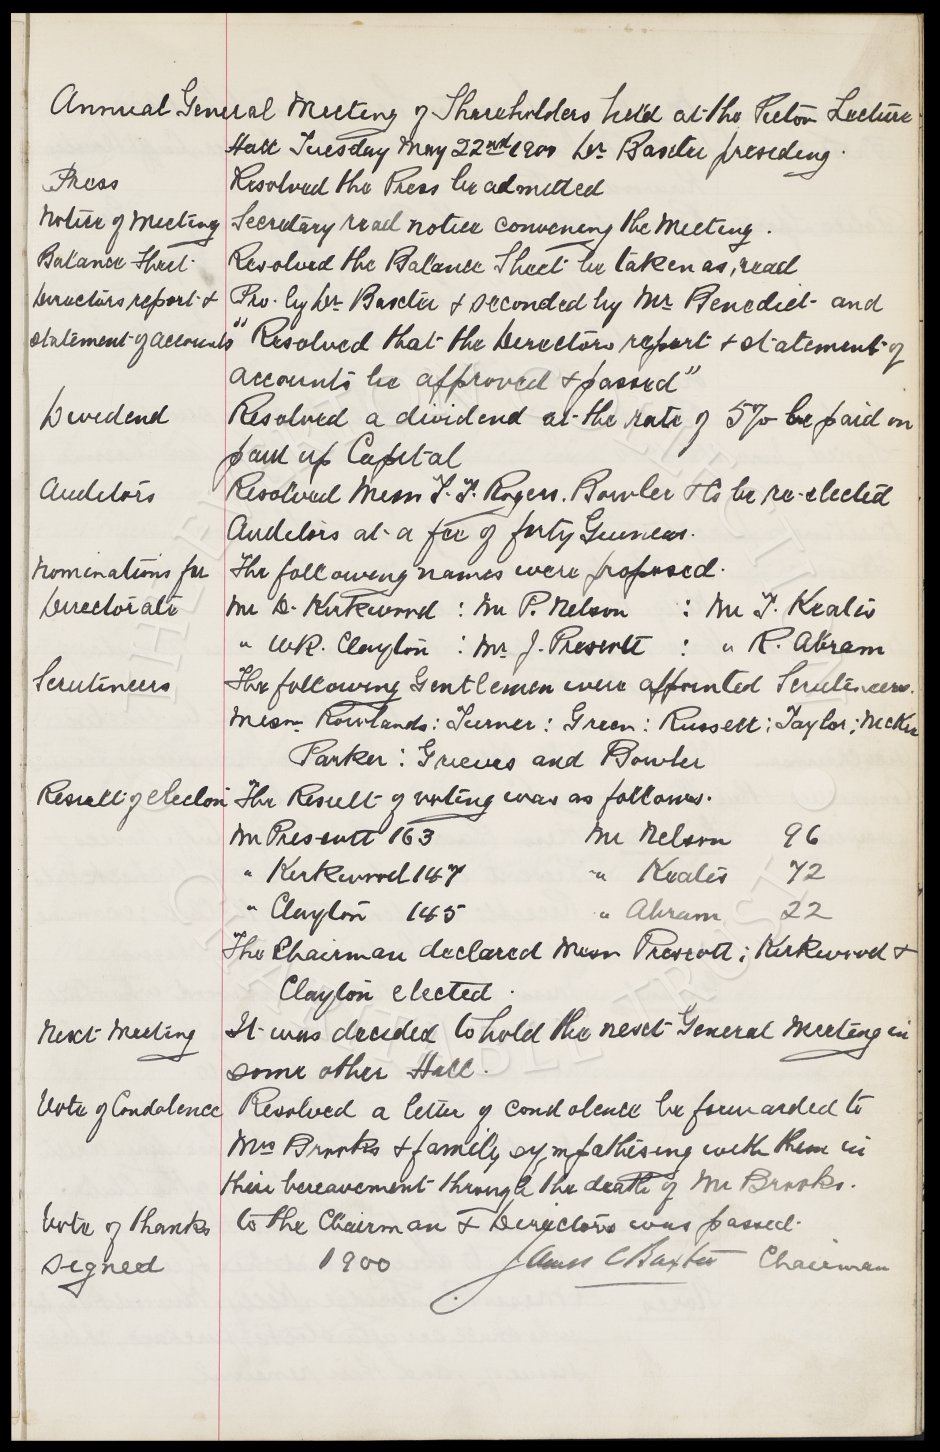 Annual General Meeting of Shareholders held at the Picton Lecture
Hall Tuesday May 22nd 1900 Dr. Baxter presiding.
Press Resolved the Press be admitted
Notice of Meeting Secretary read notice convening the Meeting.
Balance Sheet Resolved the Balance Sheet be taken as read
Directors report & Pro. by Dr Baxter & seconded by Mr Benedict and
statement of accounts "Resolved that the Directors report & statement of
accounts be approved & passed"
Dividend Resolved a dividend at the rate of 5% be paid on
paid up Capital
Auditors Resolved Messrs T. T. Rogers, Bowler & Co be re-elected
Auditors at a fee of forty Guineas.
Nominations for The following names were proposed.
Directorate Mr D. Kirkwood : Mr P. Nelson : Mr T. Keates
" W.R. Clayton : Mr J. Prescott : " R. Abram
Scrutineers The following Gentlemen were appointed Scrutineers.
Messrs Rowlands : Turner : Green : Russell : Taylor :
Parker : Grieves and Bowler
Result of election The Result of voting was as follows.
Mr Prescott 163 Mr Nelson 96
" Kirkwood 147 " Keates 72
" Clayton 145 " Abram 22
The Chairman declared Messrs Prescott ; Kirkwood &
Clayton elected.
Next Meeting It was decided to hold the next General Meeting in
some other Hall.
Vote of Condolence Resolved a letter of condolence be forwarded to
Mrs Brooks & family sympathising with them in
their bereavement through the death of Mr Brooks.
Vote of thanks to the Chairman & Directors was passed.
Signed 1900 James C Baxter Chairman
THE EVERTON COLLECTION
CHARITABLE TRUST